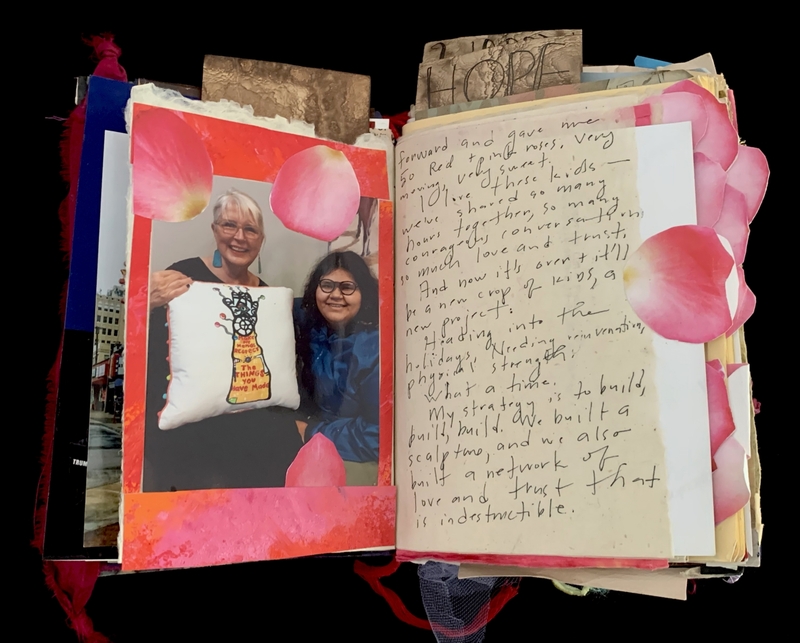 TRUM
RESPECT
The
THINGS
YOU
Have Made
HOPE
forward and gave me
50 Red + pink roses. Very
moving, very sweet.
I love these kids —
we've shared so many
hours together, so many
courageous conversations,
so much love and trust.
And now it's over + it'll
be a new crop of kids, a
new project.
Heading into the
holidays. Needing rejuvenation,
physical strength.
What a time.
My strategy is to build,
build, build. We built a
sculpture, and we also
built a network of
love and trust that
is indestructible.